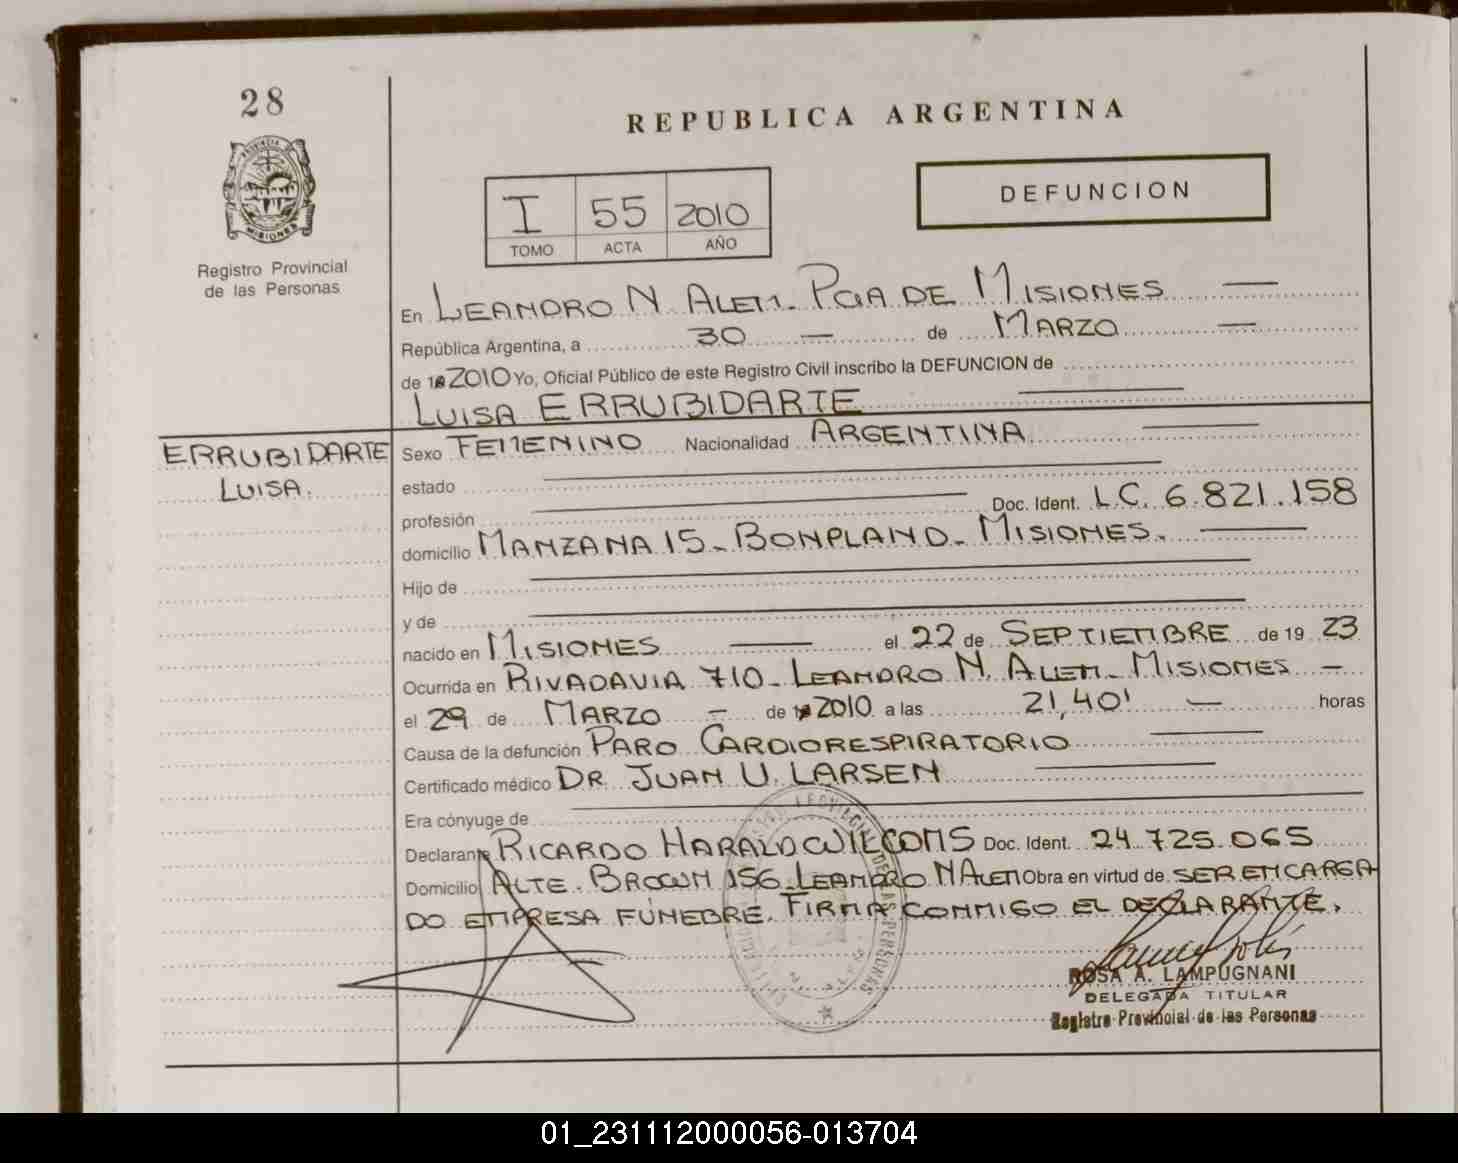 28
REPUBLICA ARGENTINA
DEFUNCION
I 55 2010
TOMO ACTA AÑO
MISIONES
Registro Provincial
de las Personas
En LEANDRO N. ALEM - PCIA DE MISIONES
República Argentina, a 30 de MARZO
de 2010 Yo, Oficial Público de este Registro Civil inscribo la DEFUNCION de
LUISA ERRUBIDARTE
ERRUBIDARTE
LUISA.
Sexo FEMENINO Nacionalidad ARGENTINA
estado
profesión Doc. Ident. L.C. 6.821.158
domicilio MANZANA 15 - BONPLAND - MISIONES.
Hijo de
y de
nacido en MISIONES el 22 de SEPTIEMBRE de 19 23
Ocurrida en RIVADAVIA 710 - LEANDRO N. ALEM - MISIONES -
el 29 de MARZO - de 2010 a las 21,40' - horas
Causa de la defunción PARO CARDIORESPIRATORIO
Certificado médico DR. JUAN U. LARSEN
Era cónyuge de
Declarante RICARDO HARALDO Doc. Ident. 24.725.065
Domicilio ALTE. BROWN 156 - LEANDRO N ALEM Obra en virtud de SER ENCARGA
DO EMPRESA FÚNEBRE. FIRMA CONMIGO EL DECLARANTE.
ROSA A. LAMPUGNANI
DELEGADA TITULAR
Registro Provincial de las Personas
01_231112000056-013704